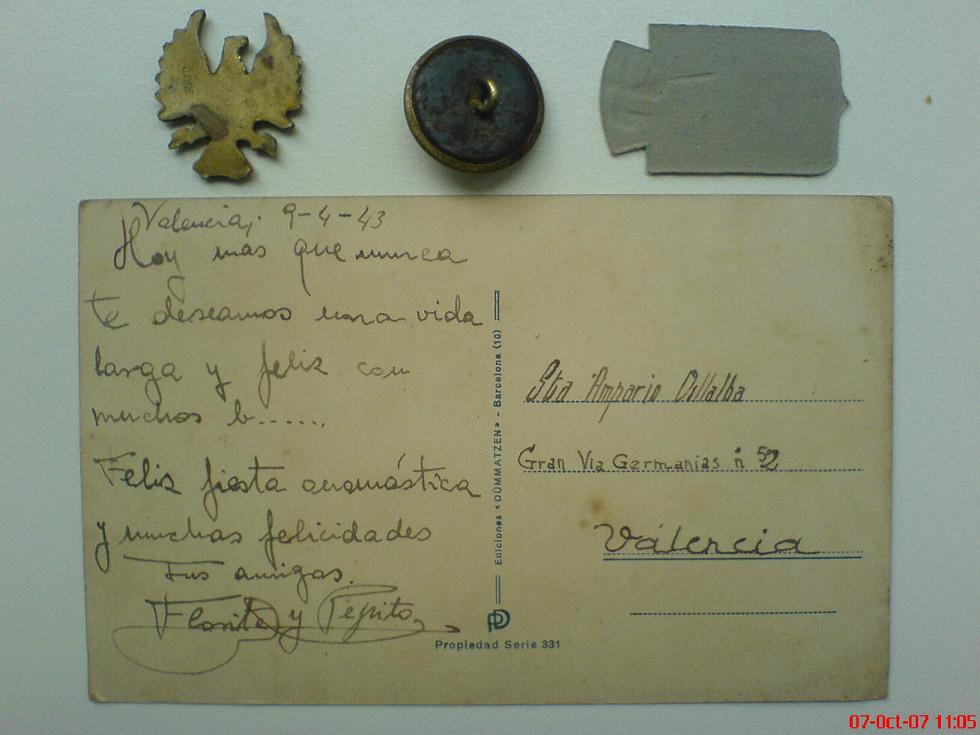 Valencia, 9-4-43
Hoy mas que nunca
te deseamos una vida
larga y feliz con
muchos b......
Feliz fiesta onomástica
y muchas felicidades
Tus amigas.
Florita y Pepito
Ediciones «DÜMMATZEN» - Barcelona (10)
Propiedad Serie 331
Sta Amparo Villalba
Gran Via Germanias n 52
Valencia
07-Oct-07 11:05